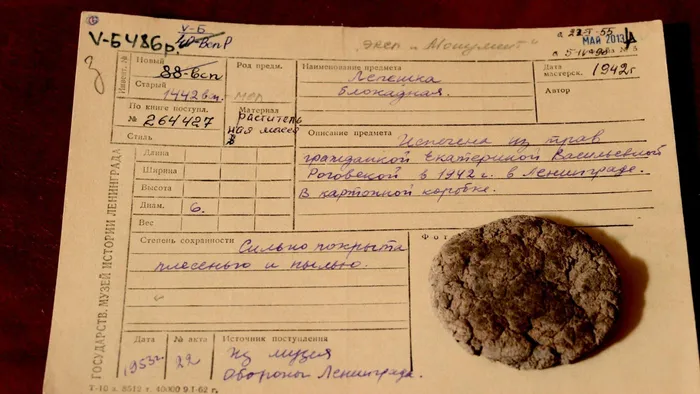 V-Б
V-Б 486р.
эксп. "Монумент"
МАЙ 2013
№ 5
ГОСУДАРСТВ. МУЗЕЙ ИСТОРИИ ЛЕНИНГРАДА
Инвент. №
Новый
88-всп
Старый
1442
По книге поступл.
№ 264427
Стиль
Род предм.
Материал
раститель
ная масса
Наименование предмета
Лепешка
блокадная.
Дата
мастерск.
1942г
Автор
Описание предмета
Испечена из трав
гражданкой Екатериной Васильевной
Роговской в 1942 г. в Ленинграде.
В картонной коробке.
Длина
Ширина
Высота
Диам. 6.
Вес
Степень сохранности
Сильно покрыта
плесенью и пылью
Фот
Дата
1953г.
№ акта
22
Источник поступления
Из музея
Обороны Ленинграда.
Т-10 з. 8512 г. 40000 9.I-62 г.